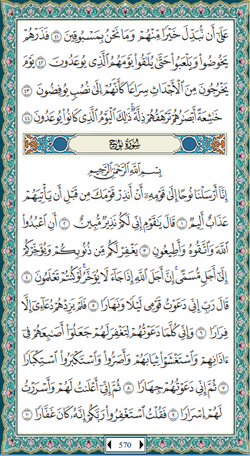 عَلَىٰ أَن نُّبَدِّلَ خَيْرًا مِّنْهُمْ وَمَا نَحْنُ بِمَسْبُوقِينَ ٤١ فَذَرْهُمْ
يَخُوضُوا۟ وَيَلْعَبُوا۟ حَتَّىٰ يُلَٰقُوا۟ يَوْمَهُمُ ٱلَّذِى يُوعَدُونَ ٤٢ يَوْمَ
يَخْرُجُونَ مِنَ ٱلْأَجْدَاثِ سِرَاعًا كَأَنَّهُمْ إِلَىٰ نُصُبٍ يُوفِضُونَ ٤٣
خَٰشِعَةً أَبْصَٰرُهُمْ تَرْهَقُهُمْ ذِلَّةٌ ذَٰلِكَ ٱلْيَوْمُ ٱلَّذِى كَانُوا۟ يُوعَدُونَ ٤٤
سُورَةُ نُوحٍ
بِسْمِ ٱللَّهِ ٱلرَّحْمَٰنِ ٱلرَّحِيمِ
إِنَّآ أَرْسَلْنَا نُوحًا إِلَىٰ قَوْمِهِۦٓ أَنْ أَنذِرْ قَوْمَكَ مِن قَبْلِ أَن يَأْتِيَهُمْ
عَذَابٌ أَلِيمٌ ١ قَالَ يَٰقَوْمِ إِنِّى لَكُمْ نَذِيرٌ مُّبِينٌ ٢ أَنِ ٱعْبُدُوا۟
ٱللَّهَ وَٱتَّقُوهُ وَأَطِيعُونِ ٣ يَغْفِرْ لَكُم مِّن ذُنُوبِكُمْ وَيُؤَخِّرْكُمْ
إِلَىٰٓ أَجَلٍ مُّسَمًّى إِنَّ أَجَلَ ٱللَّهِ إِذَا جَآءَ لَا يُؤَخَّرُ لَوْ كُنتُمْ تَعْلَمُونَ ٤
قَالَ رَبِّ إِنِّى دَعَوْتُ قَوْمِى لَيْلًا وَنَهَارًا ٥ فَلَمْ يَزِدْهُمْ دُعَآءِىٓ إِلَّا
فِرَارًا ٦ وَإِنِّى كُلَّمَا دَعَوْتُهُمْ لِتَغْفِرَ لَهُمْ جَعَلُوٓا۟ أَصَٰبِعَهُمْ فِىٓ
ءَاذَانِهِمْ وَٱسْتَغْشَوْا۟ ثِيَابَهُمْ وَأَصَرُّوا۟ وَٱسْتَكْبَرُوا۟ ٱسْتِكْبَارًا
٧ ثُمَّ إِنِّى دَعَوْتُهُمْ جِهَارًا ٨ ثُمَّ إِنِّىٓ أَعْلَنتُ لَهُمْ وَأَسْرَرْتُ
لَهُمْ إِسْرَارًا ٩ فَقُلْتُ ٱسْتَغْفِرُوا۟ رَبَّكُمْ إِنَّهُۥ كَانَ غَفَّارًا ١٠
570